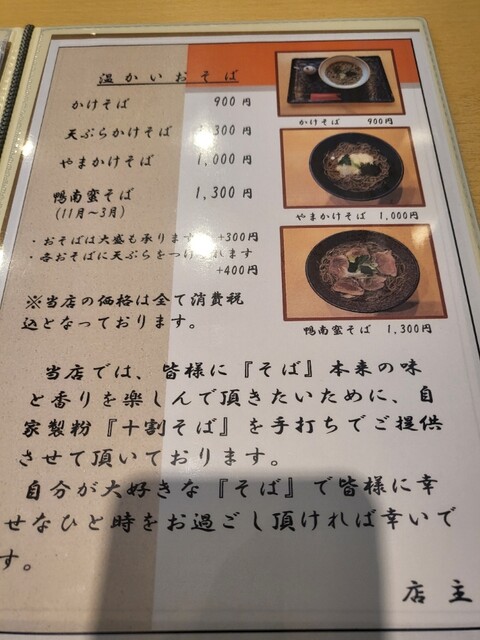 温かいおそば
かけそば 900円
天ぷらかけそば 1,300円
やまかけそば 1,000円
鴨南蛮そば 1,300円
(11月~3月)
・おそばは大盛も承ります +300円
・各おそばに天ぷらをつけられます
+400円
※当店の価格は全て消費税
込となっております。
かけそば 900円
やまかけそば 1,000円
鴨南蛮そば 1,300円
当店では、皆様に『そば』本来の味
と香りを楽しんで頂きたいために、自
家製粉『十割そば』を手打ちでご提供
させて頂いております。
自分が大好きな『そば』で皆様に幸
せなひと時をお過ごし頂ければ幸いで
す。
店主